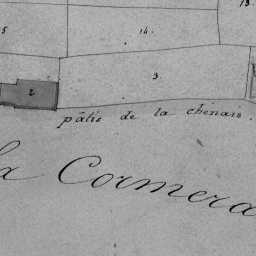 13.
5
14.
3.
2
pâtis de la chenais.
la Cormera